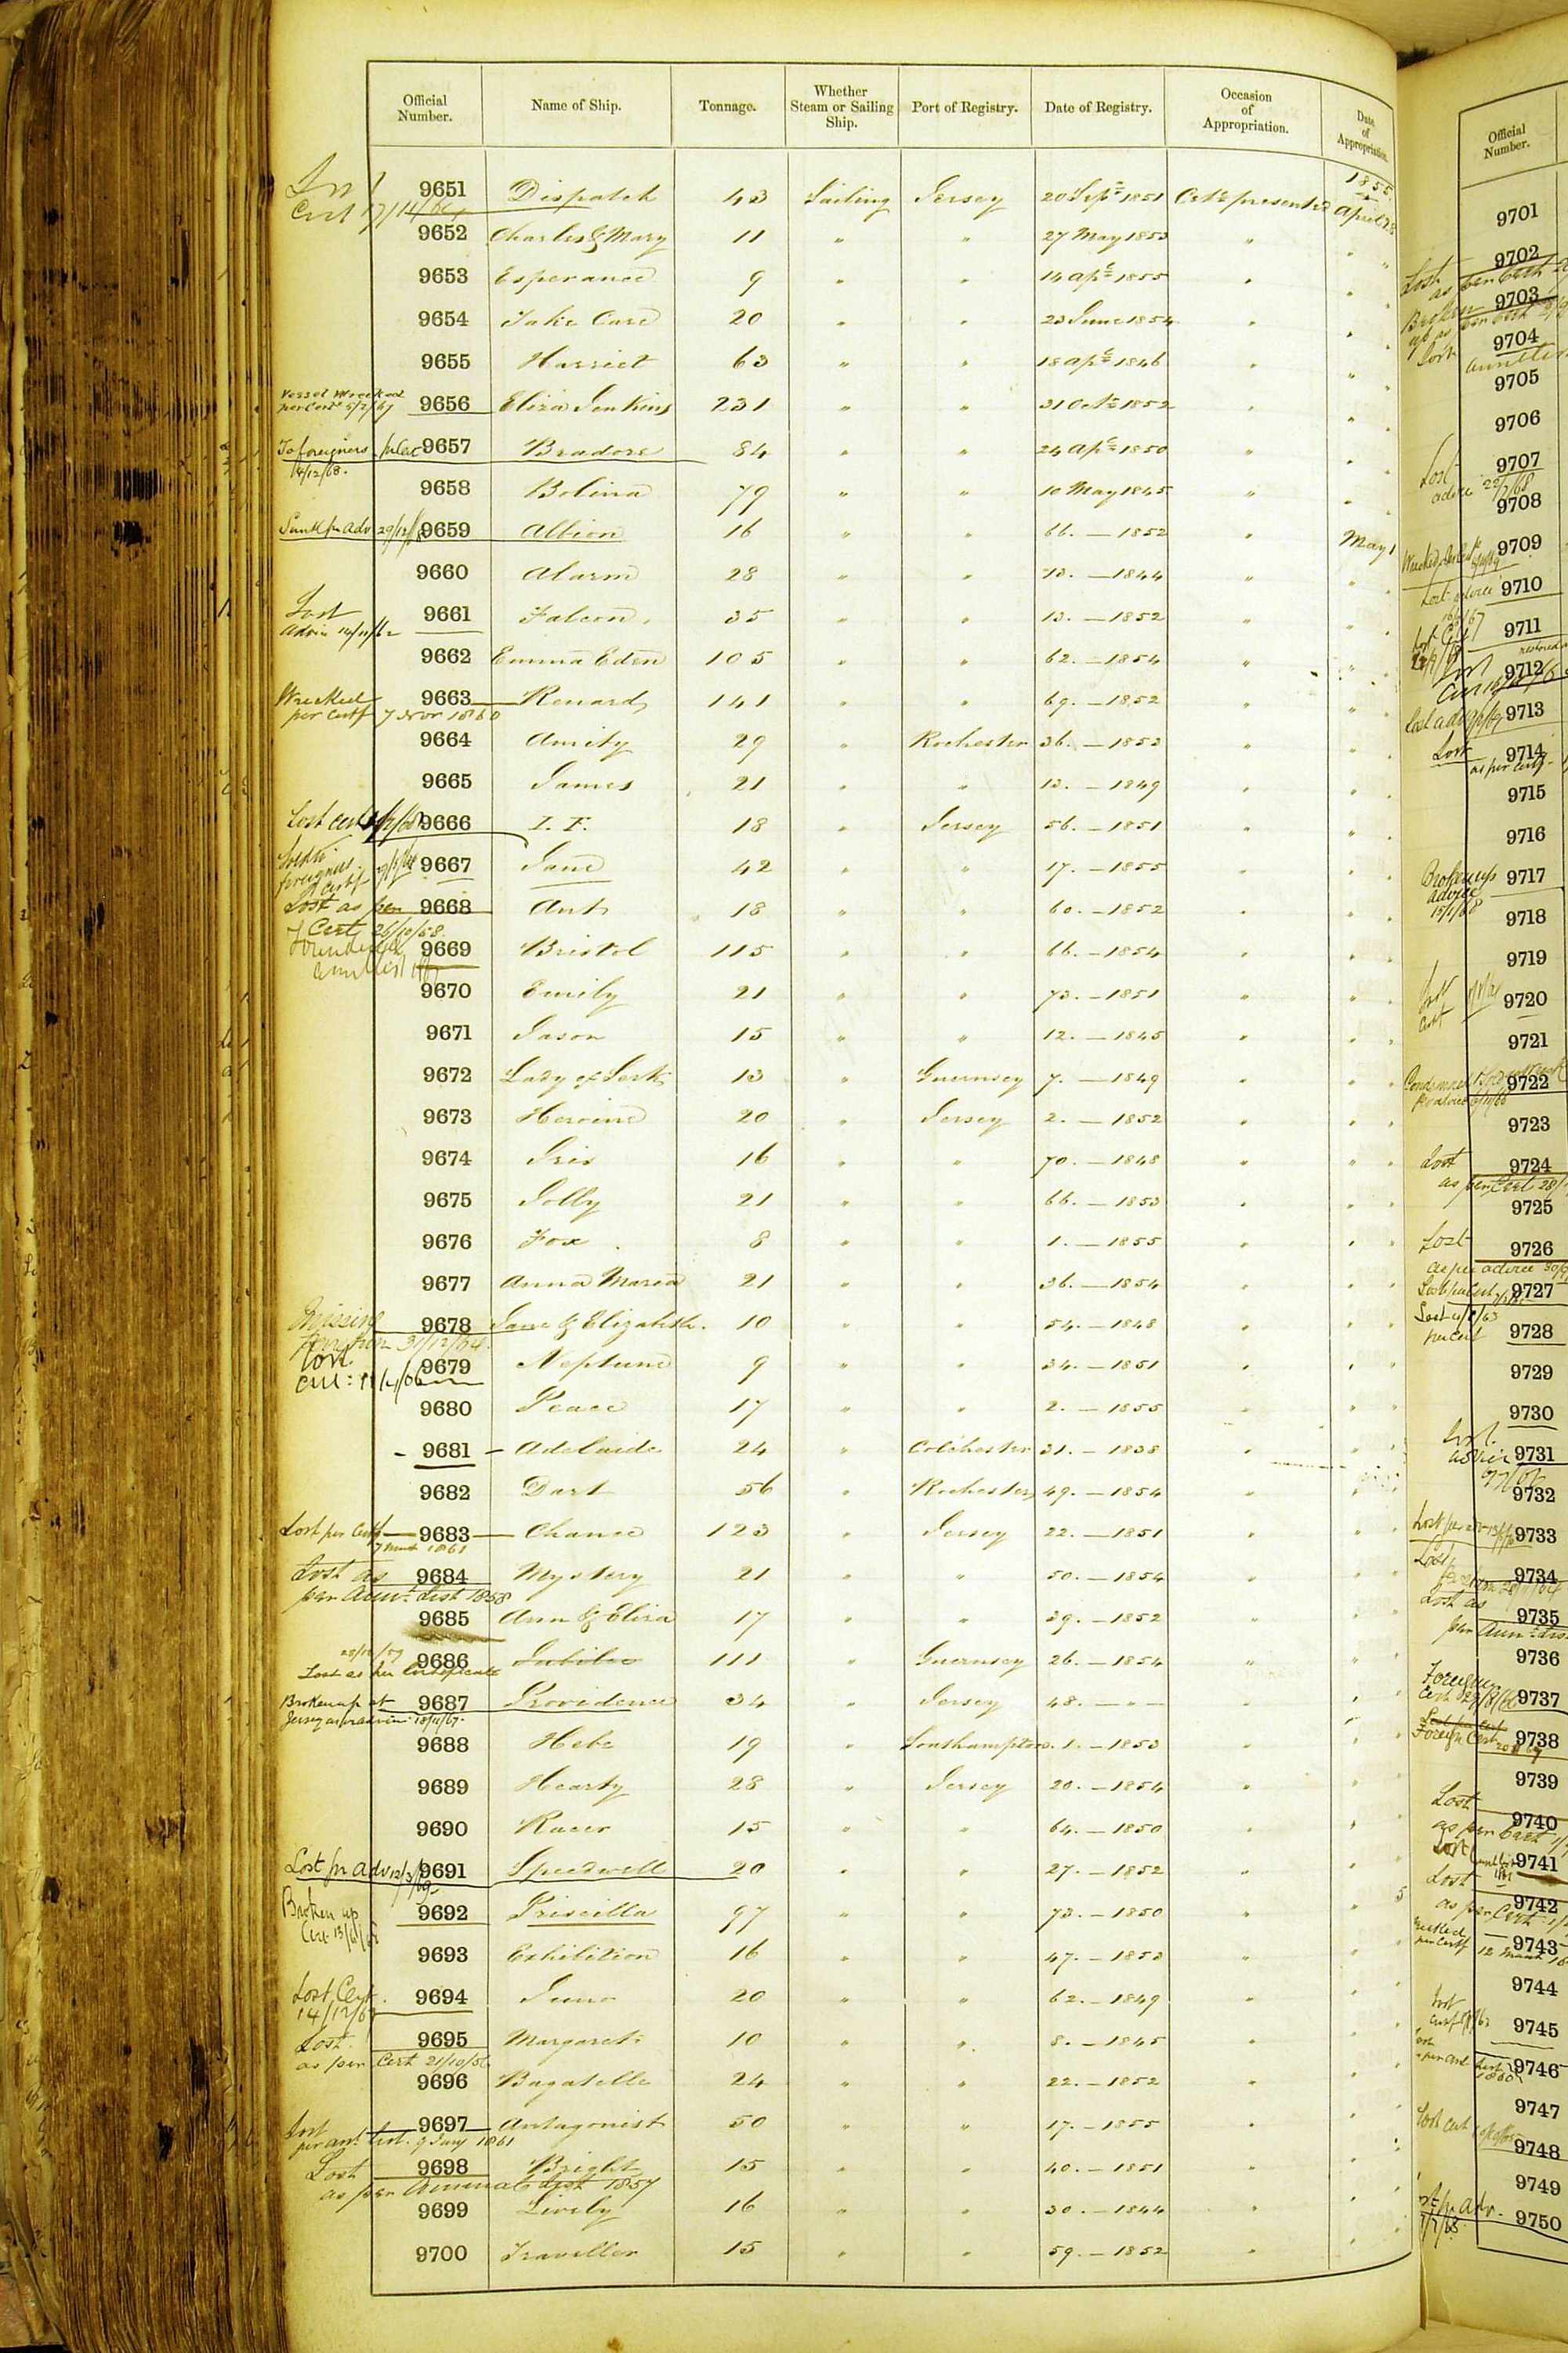 Official Number. Name of Ship. Tonnage. Whether Steam or Sailing Ship. Port of Registry. Date of Registry. Occasion of Appropriation. Date of Appropriation.
1855
9651 Dispatch 43 Sailing Jersey 20 Sep 1851 Certe presented April 28
Cert 17/11/
9652 Charles & Mary 11 " " 27 May 1853 " "
9653 Esperance 9 " " 14 Apl 1855 " "
9654 Take Care 20 " " 23 June 1854 " "
9655 Harriet 63 " " 18 Apl 1846 " "
Vessel Wrecked per Cert 5/2/67 9656 Eliza Jenkins 231 " " 31 Octr 1852 " "
To foreigners 9657 Bradore 84 " " 24 Apl 1850 " "
4/12/68.
9658 Bolina 79 " " 10 May 1845 " "
Sunk pr Adv 29/12/ 9659 Albion 16 " " 66. — 1852 " May 1
9660 Alarm 28 " " 13. — 1844 " "
Lost Advice 14/11/62 9661 Falcon 35 " " 13. — 1852 " "
9662 Emma Eden 105 " " 62. — 1854 " "
Wrecked per Certf 7 Novr 1860 9663 Renard 141 " " 69. — 1852 " "
9664 Amity 29 " Rochester 36. — 1853 " "
9665 James 21 " " 13. — 1849 " "
Lost cert 9666 I. F. 18 " Jersey 56. — 1851 " "
Sold to foreigners Certf 9667 Jane 42 " " 17. — 1855 " "
Lost as per Cert 26/10/58. 9668 Ant 18 " " 60. — 1852 " "
Foundered 9669 Bristol 115 " " 66. — 1854 " "
9670 Emily 21 " " 73. — 1851 " "
9671 Jason 15 " " 12. — 1845 " "
9672 Lady of Serk 13 " Guernsey 7. — 1849 " "
9673 Heroine 20 " Jersey 2. — 1852 " "
9674 Iris 16 " " 70. — 1848 " "
9675 Jolly 21 " " 66. — 1853 " "
9676 Fox 8 " " 1. — 1855 " "
9677 Anna Maria 21 " " 36. — 1854 " "
Missing 31/12/64. 9678 Jane & Elizabeth. 10 " " 54. — 1848 " "
Lost Cert: 9679 Neptune 9 " " 34. — 1851 " "
9680 Peace 17 " " 2. — 1855 " "
- 9681 - Adelaide 24 " Colchester 31. — 1838 " "
9682 Dart 56 " Rochester 49. — 1854 " "
Lost per Certf 7 1861 9683 Chance 123 " Jersey 22. — 1851 " "
Lost as per Annl List 1858 9684 Mystery 21 " " 50. — 1854 " "
9685 Ann & Eliza 17 " " 39. — 1852 " "
Lost as per Certificate 9686 Jubilee 111 " Guernsey 26. — 1854 " "
Broken up at Jersey as per advice 9687 Providence 34 " Jersey 48. — " — " "
9688 Hebe 19 " Southampton 1. — 1853 " "
9689 Hearty 28 " Jersey 20. — 1854 " "
9690 Racer 15 " " 64. — 1850 " "
Lost pr Adv 12/3/69 9691 Speedwell 20 " " 27. — 1852 " "
Broken up Cert 9692 Priscilla 97 " " 73. — 1850 " " 5
9693 Exhibition 16 " " 47. — 1853 " "
Lost Cert. 14/12/ 9694 Juno 20 " " 62. — 1849 " "
Lost. as per Cert 21/10/ 9695 Margaret 10 " " 8. — 1845 " "
9696 Bagatelle 24 " " 22. — 1852 " "
Lost per anl List. 9 Jany 1861 9697 Antagonist 50 " " 17. — 1855 " "
Lost as per Annual List 1857 9698 Bright 15 " " 40. — 1851 " "
9699 Lively 16 " " 30. — 1844 " "
9700 Traveller 15 " " 59. — 1852 " "
Official Number.
9701
9702
Lost as per Certf
9703
Broken up as per Cert
9704
Lost
9705
9706
9707
Lost advice 22/7/68
9708
9709
9710
Lost advice
9711
9712
9713
9714
Lost as per Certf
9715
9716
9717
Broken up advice
9718
9719
9720
9721
9722
Condemned
9723
9724
Lost as per Cert
9725
9726
Lost as per advice
9727
9728
9729
9730
9731
9732
9733
9734
Lost
9735
Lost as per Annl List
9736
9737
Foreign Cert
9738
Foreign Cert
9739
9740
Lost as per Cert
9741
Lost
9742
Lost as per Cert
9743
per Certf 12 March
9744
9745
9746
9747
9748
Lost cert
9749
9750